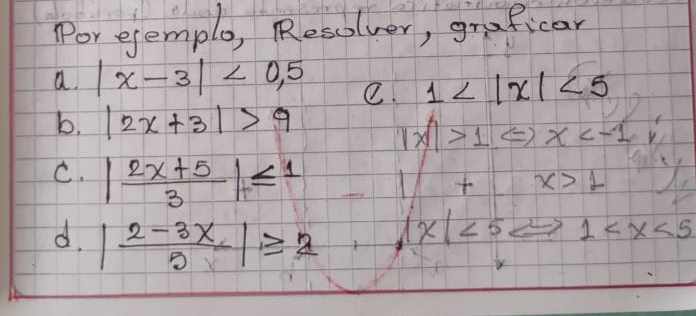 Por ejemplo, Resolver, graficar
a. |x - 3| < 0,5
b. |2x + 3| > 9
c. |(2x + 5)/3| ≤ 1
d. |(2 - 3x)/5| ≥ 2
e. 1 < |x| < 5
|x| > 1 ⇔ x < -1
x > 1
|x| < 5 ⇔ 1 < x < 5